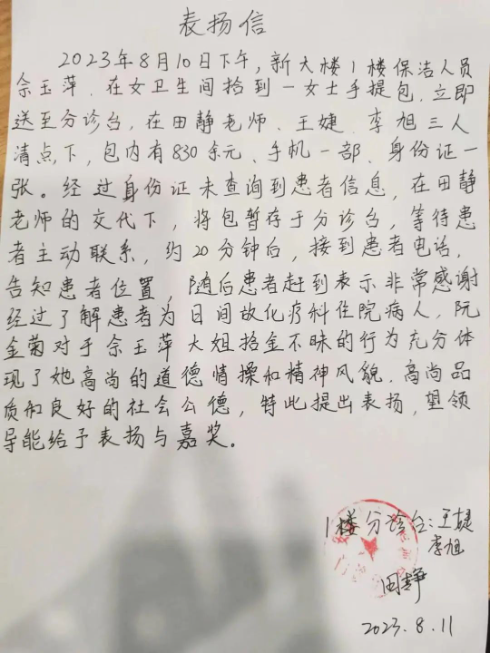 表扬信
2023年8月10日下午，新大楼1楼保洁人员
佘玉萍、在女卫生间拾到一女士手提包，立即
送至分诊台，在田静老师、王婕、李旭三人
清点下，包内有830余元、手机一部、身份证一
张。经过身份证未查询到患者信息，在田静
老师的交代下，将包暂存于分诊台，等待患
者主动联系，约20分钟后，接到患者电话，
告知患者位置，随后患者赶到表示非常感谢
经过了解患者为日间放化疗科住院病人，阮
金菊对于佘玉萍大姐拾金不昧的行为充分体
现了她高尚的道德情操和精神风貌、高尚品
质和良好的社会公德，特此提出表扬，望领
导能给予表扬与嘉奖。
1楼分诊台：王婕
李旭
田静
2023.8.11